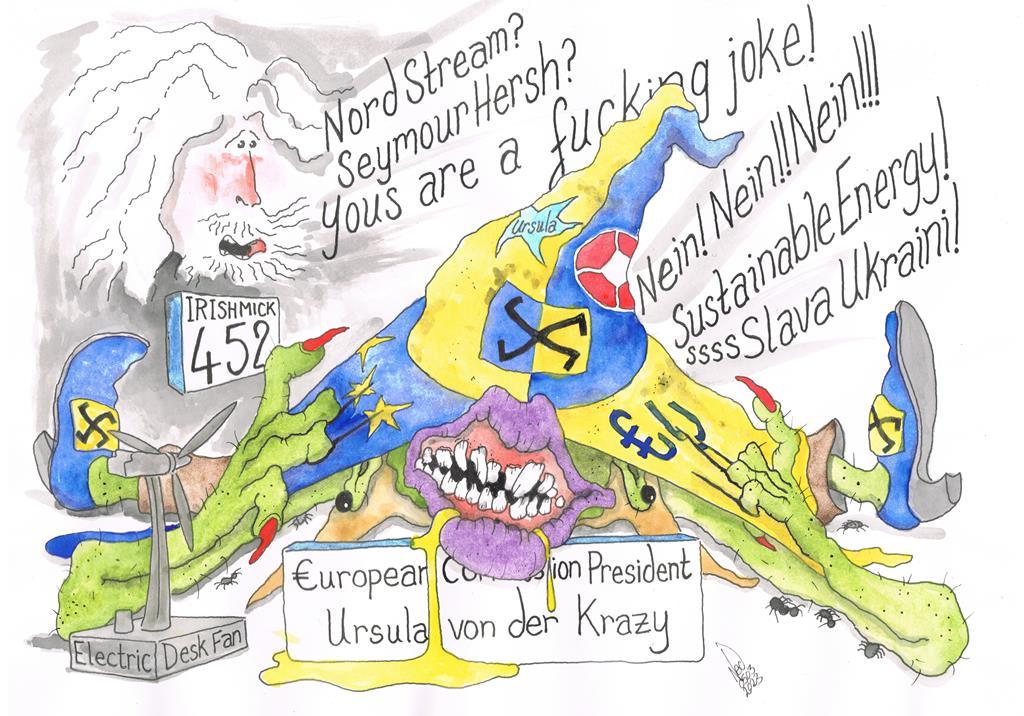 Nord Stream?
Seymour Hersh?
yous are a fucking joke!
Nein! Nein!!! Nein!!!!
Sustainable Energy!
ssssSlava Ukraini!
Ursula
IRISHMICK
452
€uropean Co ion President
Ursula von der Krazy
Electric Desk Fan
2023